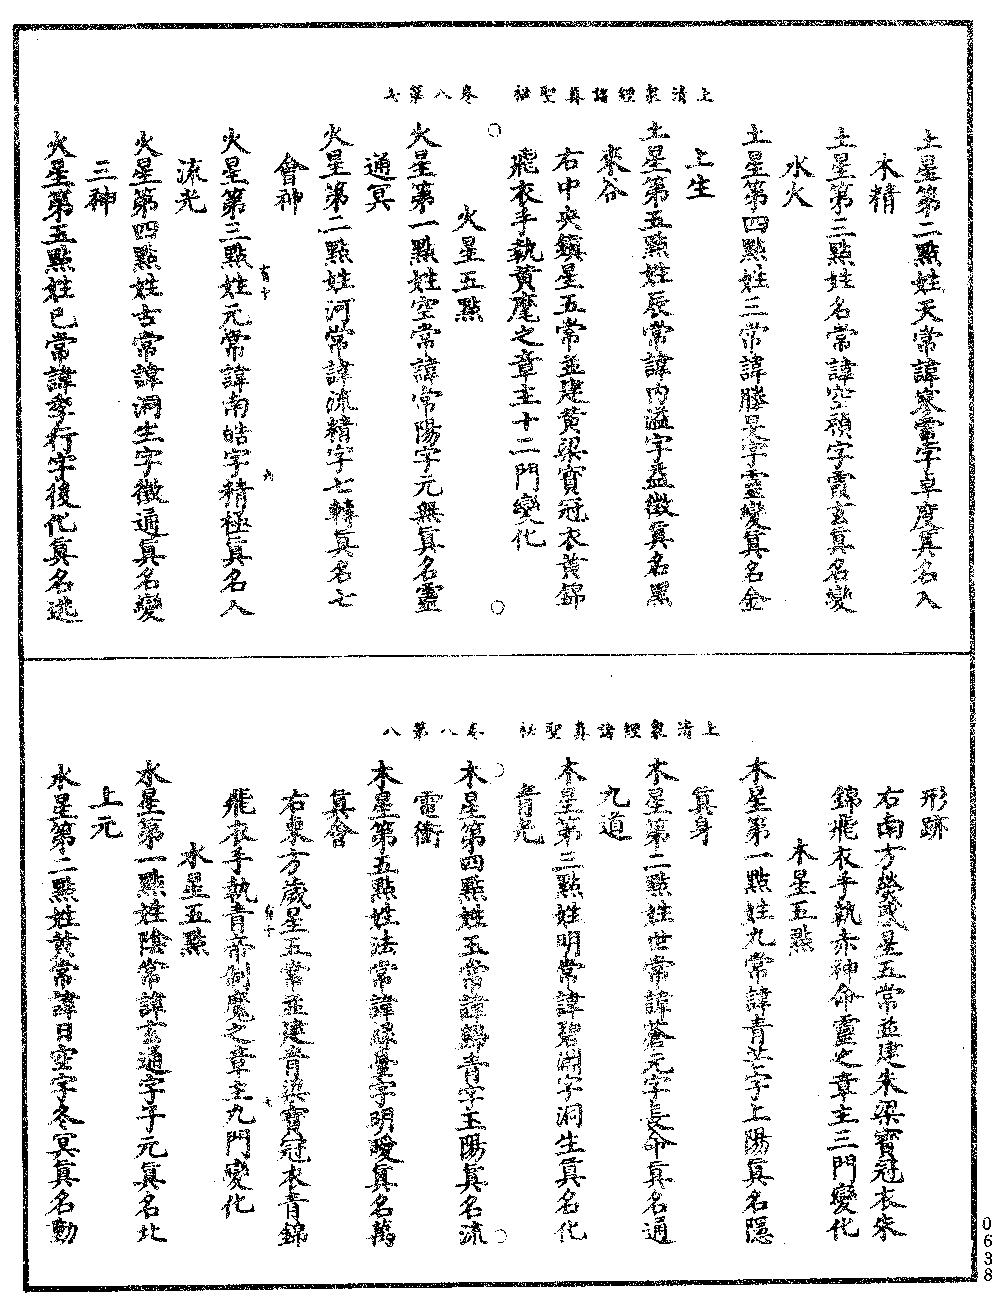 上清衆經諸真聖祕　卷八第七
土星第二點姓天常諱寒靈字卓度真名入
木精
土星第三點姓名常諱空積字霞玄真名變
水火
土星第四點姓三常諱勝旻字靈變真名金
上生
土星第五點姓辰常諱內溢字益徵真名黑
來谷
右中央鎮星五常並建黃梁寶冠衣黃錦
飛衣手執黃麾之章主十二門變化
火星五點
火星第一點姓空常諱常陽字元無真名靈
通冥
火星第二點姓河常諱流精字七轉真名七
會神
火星第三點姓元常諱南皓字精極真名人
流光
火星第四點姓古常諱洞生字徵通真名變
三神
火星第五點姓巳常諱孝行字後化真名逃
上清衆經諸真聖祕　卷八第八
形跡
右南方熒惑星五常並建朱梁寶冠衣朱
錦飛衣手執赤神命靈之章主三門變化
木星五點
木星第一點姓九常諱青字上陽真名隱
真身
木星第二點姓世常諱蒼元字長命真名通
九道
木星第三點姓明常諱碧淵字洞生真名化
青光
木星第四點姓玉常諱歸青字玉陽真名流
電衝
木星第五點姓法常諱綠臺字明曖真名萬
真會
右東方歲星五常並建青梁寶冠衣青錦
飛衣手執青帝制魔之章主九門變化
水星五點
水星第一點姓陰常諱玄通字平元真名北
上元
水星第二點姓黃常諱日空字冬冥真名動
0638